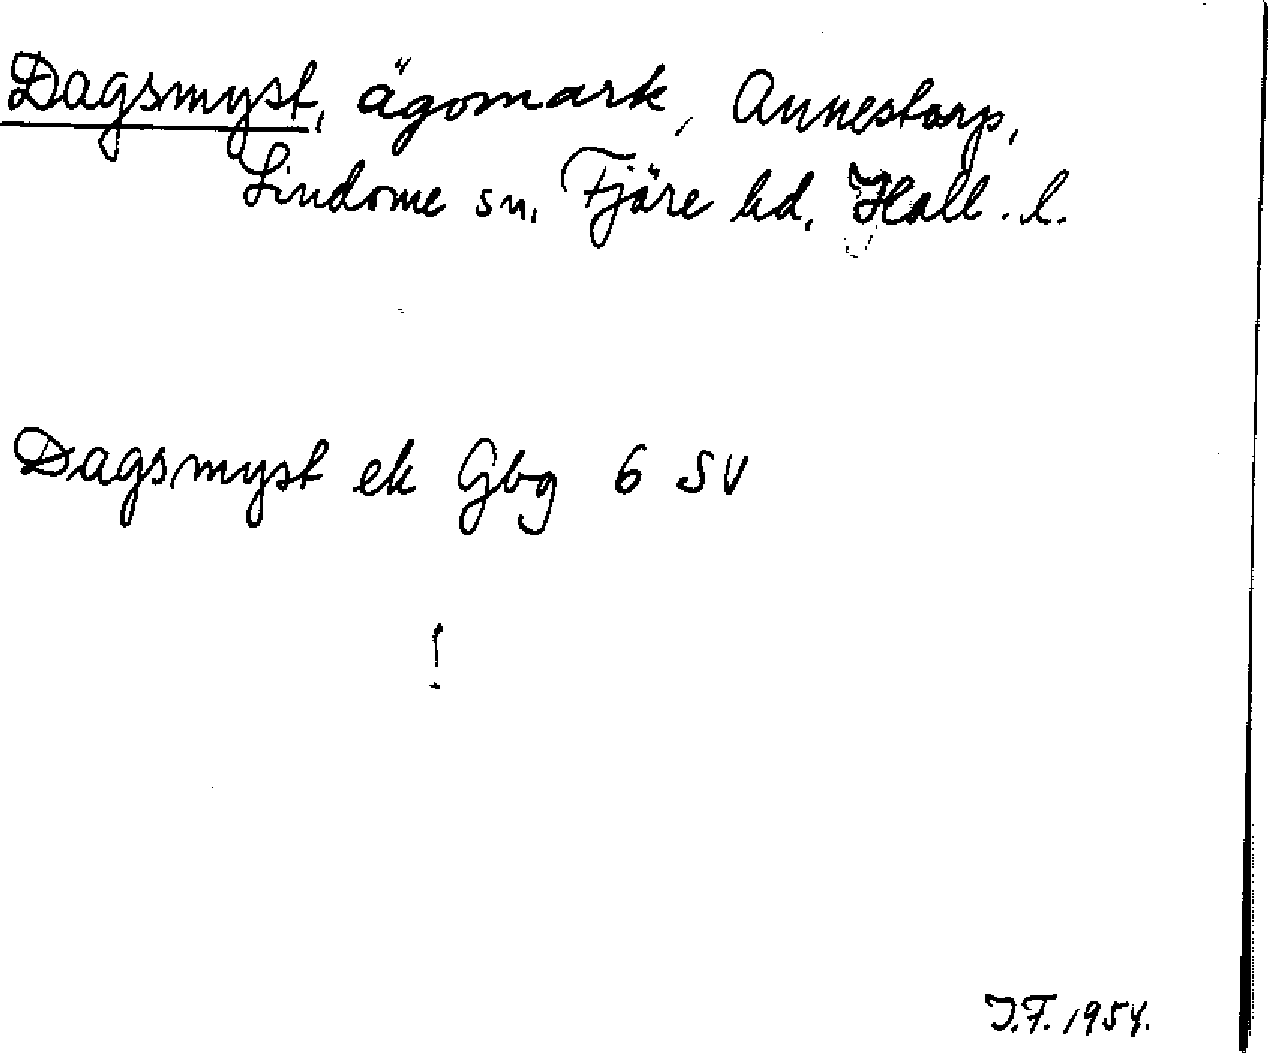 Dagsmyst, ägomark, Annestorp,
Lindome sn, Fjäre hd, Hall. l.
Dagsmyst ek Gbg 6 SV
!
J.F. 1954.